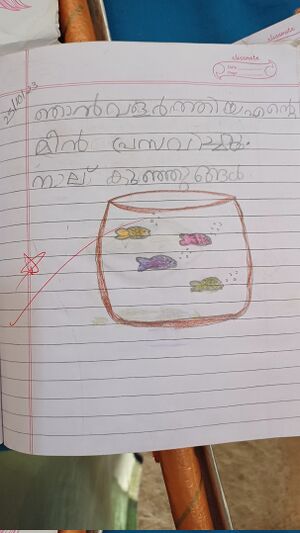 classmate
Date
Page
25/10/23
ഞാൻ വളർത്തിയ എന്റെ
മീൻ പ്രസവിച്ചു.
നാല് കുഞ്ഞുങ്ങൾ